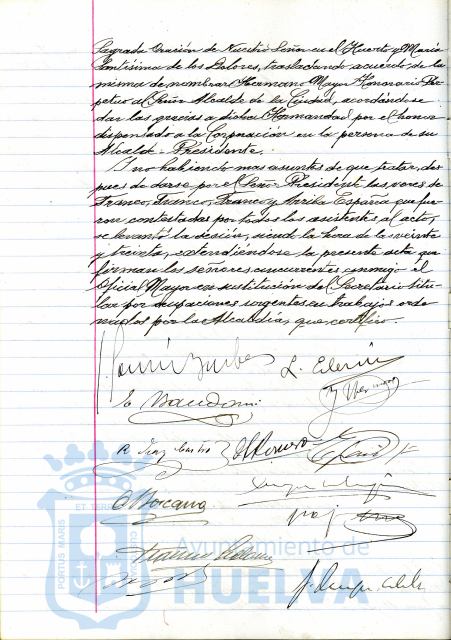 Sagrada Oración de Nuestro Señor en el Huerto y Maria
Santísima de los Dolores, trasladando acuerdo de la
misma de nombrar Hermano Mayor Honorario Per-
petuo al Señor Alcalde de la Ciudad, acordándose
dar las gracias a dicha Hermandad por el honor
dispensado a la Corporación en la persona de su
Alcalde-Presidente.
Y no habiendo mas asuntos de que tratar, des
pues de darse por el Señor Presidente las voces de
Franco, Franco, Franco y Arriba España que fue-
ron contestadas por todos los asistentes al acto,
se levantó la sesión, siendo la hora de las veinte
y treinta, extendiéndose la presente acta que
firman los señores concurrentes conmigo el
Oficial Mayor en sustitución del Secretario titu-
lar por ocupaciones urgentes en trabajos orde
nados por la Alcaldía, que certifico.
R. Diaz Castro
O Moscano
ET TERRAE
PORTUS MARIS
Ayuntamiento de
HUELVA